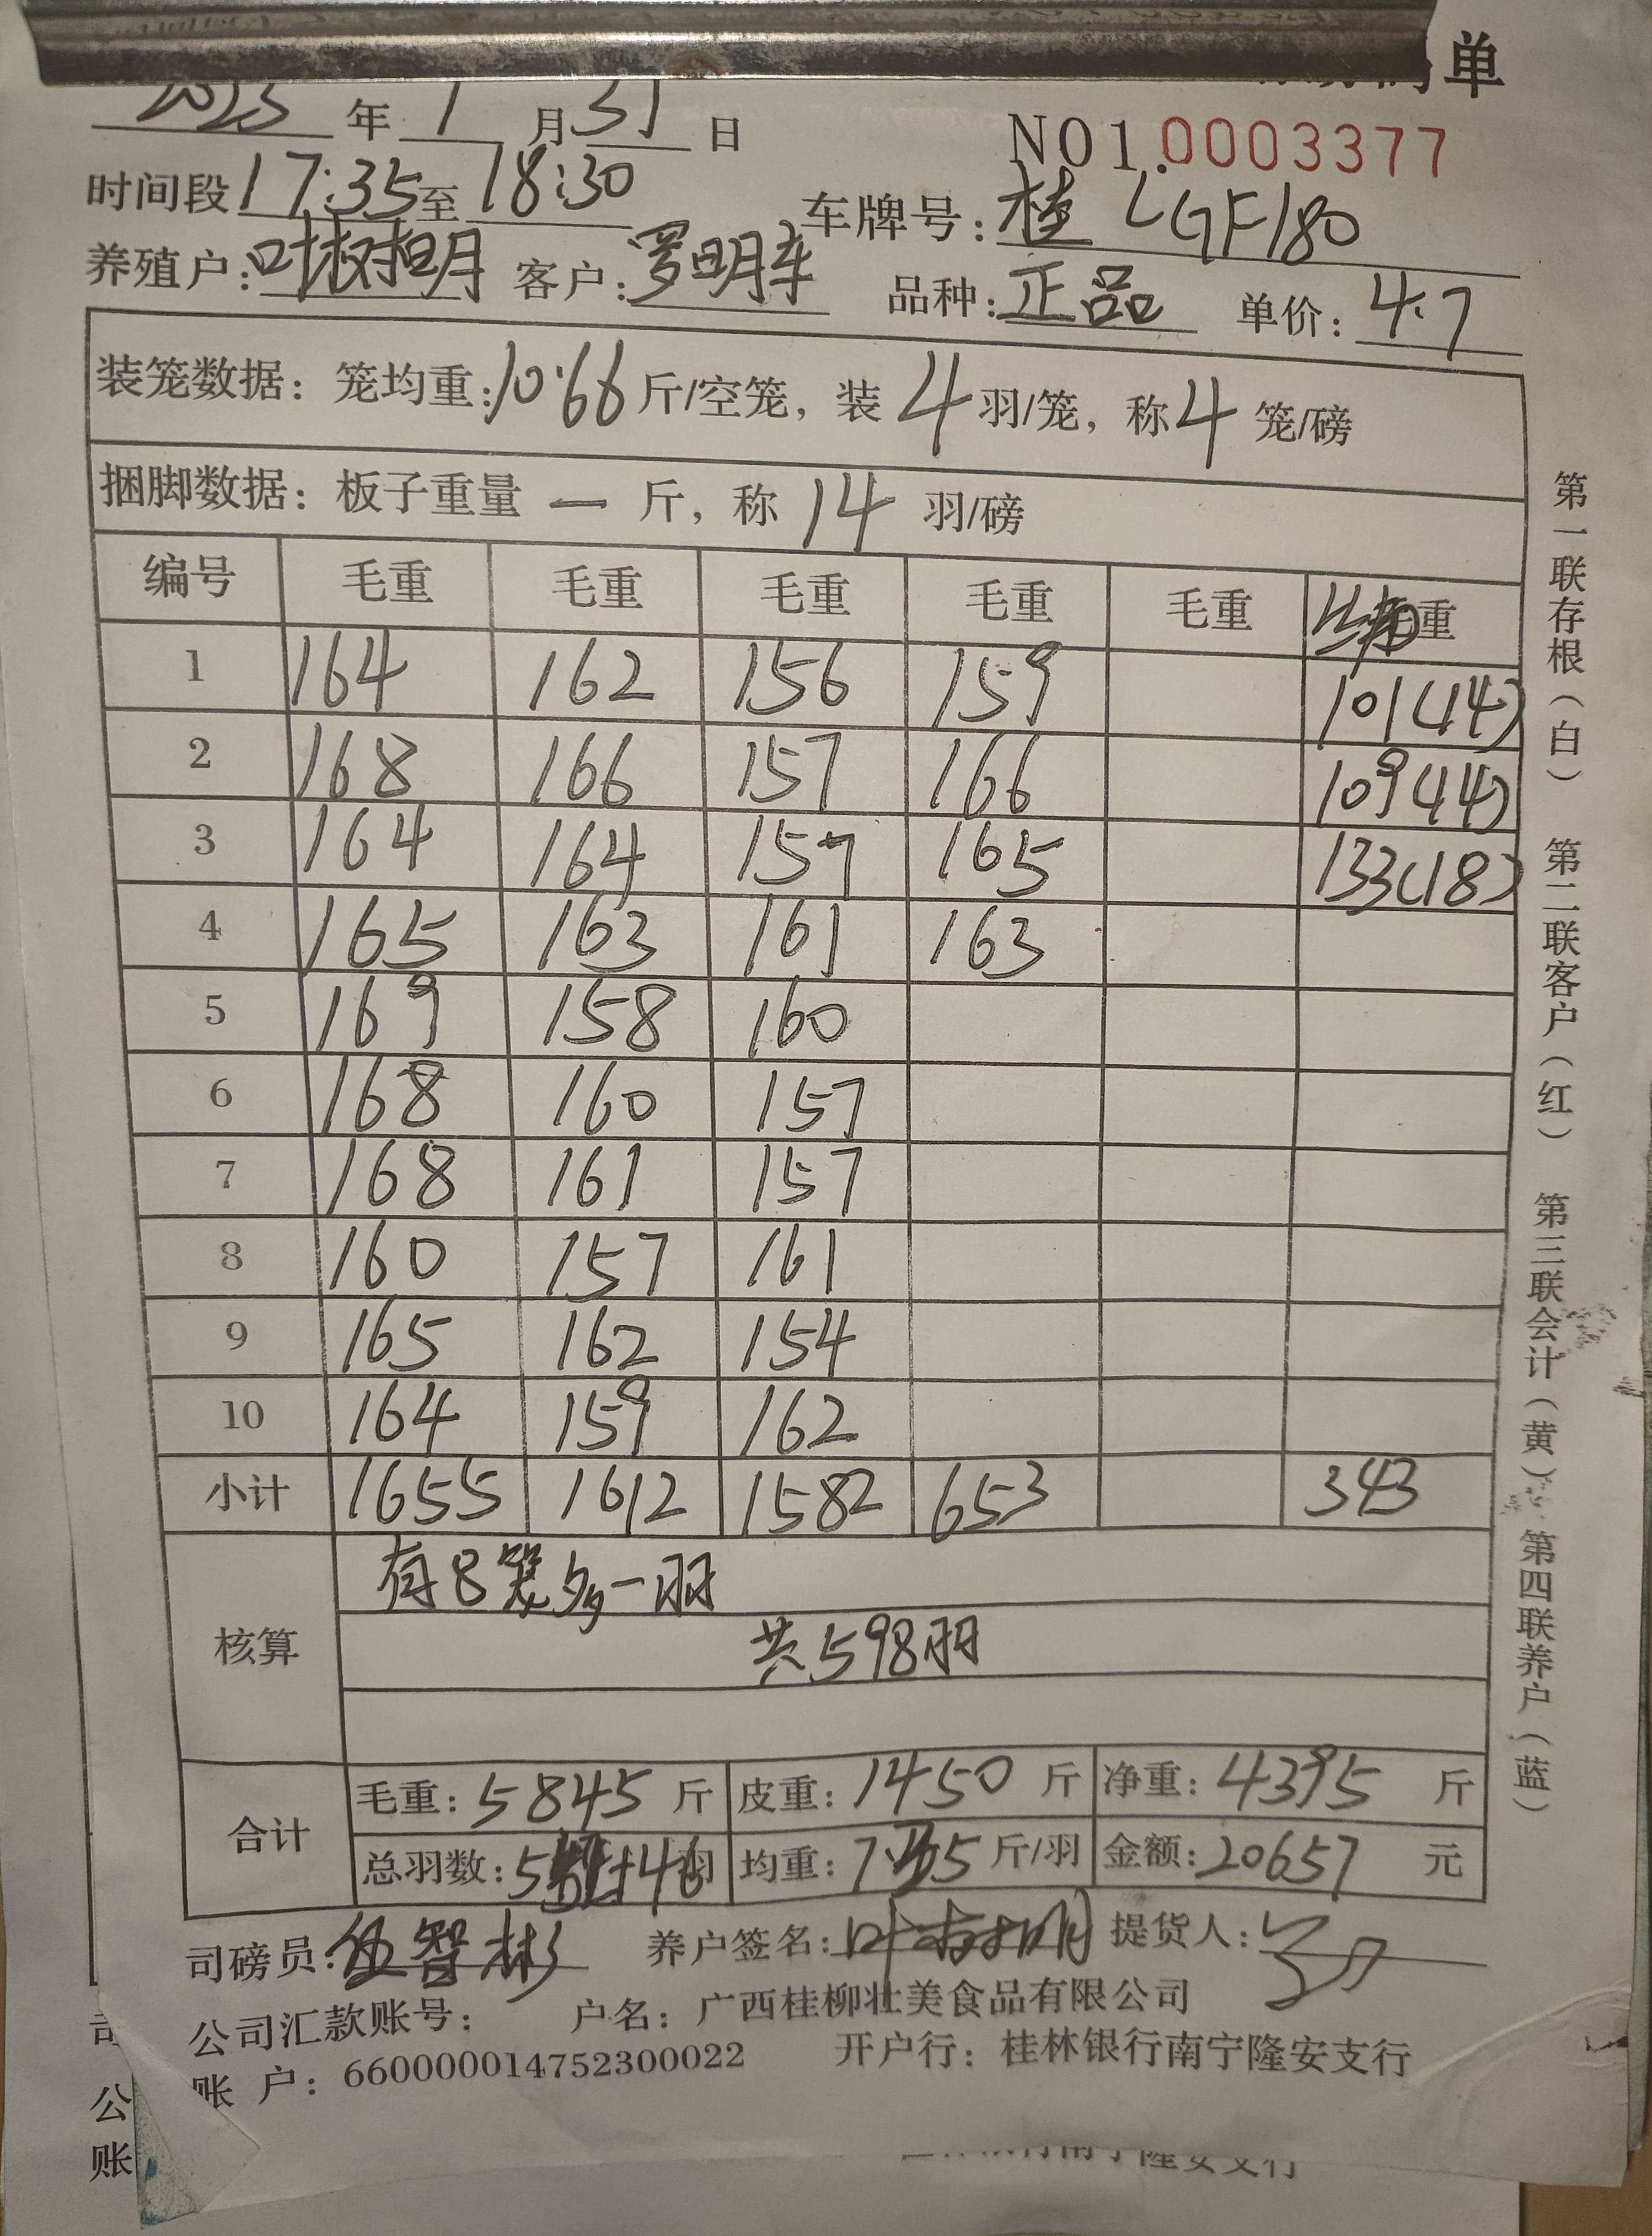 单
2023 年 1 月 31 日
NO1.0003377
时间段 17:35 至 18:30 车牌号: 桂 LGF180
养殖户: 叶树明 客户: 罗明车 品种: 正品 单价: 4.7
装笼数据: 笼均重: 10.66 斤/空笼, 装 4 羽/笼, 称 4 笼/磅
捆脚数据: 板子重量 一 斤, 称 14 羽/磅
编号 毛重 毛重 毛重 毛重 毛重 重
1 164 162 156 159 101(14)
2 168 166 157 166 109(14)
3 164 164 157 165 133(18)
4 165 163 161 163
5 169 158 160
6 168 160 157
7 168 161 157
8 160 157 161
9 165 162 154
10 164 159 162
小计 1655 1612 1582 653 343
核算
有8笼多一羽
共598羽
合计
毛重: 5845 斤 皮重: 1450 斤 净重: 4395 斤
总羽数: +46 羽 均重: 斤/羽 金额: 20657 元
司磅员: 伍智彬 养户签名: 叶树明 提货人:
公司汇款账号: 户名: 广西桂柳壮美食品有限公司
账 户: 660000014752300022 开户行: 桂林银行南宁隆安支行
第一联存根(白) 第二联客户(红) 第三联会计(黄) 第四联养户(蓝)
司
公
账